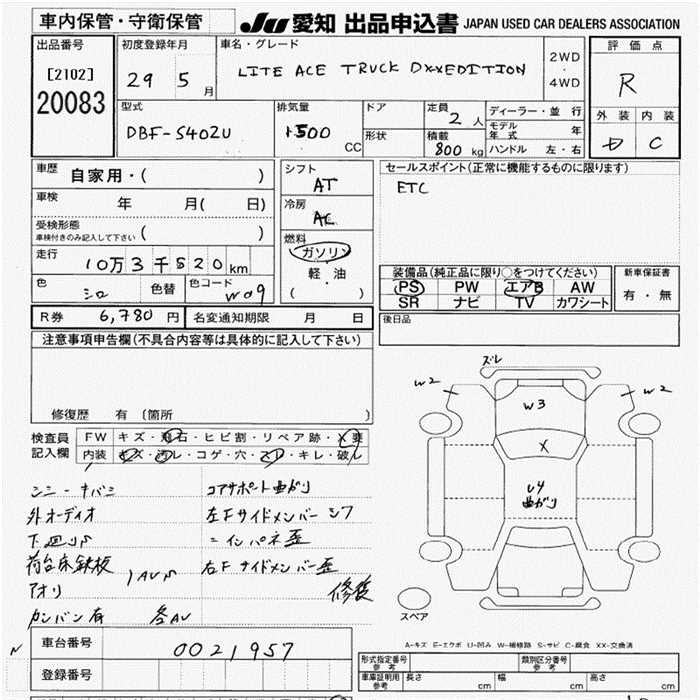 車内保管・守衛保管
JU 愛知 出品申込書 JAPAN USED CAR DEALERS ASSOCIATION
出品番号
[2102]
20083
初度登録年月
29 5 月
車名・グレード
LITE ACE TRUCK DXXEDITION
2WD
・
4WD
評価点
R
外装 内装
D C
型式
DBF-S402U
排気量
1500
CC
ドア
形状
定員
2 人
積載
800 kg
ディーラー・並 行
モデル年式 年
ハンドル 左・右
車歴
自家用・( )
車検 年 月( 日)
受検形態
車検付きのみ記入して下さい ( )
走行
10万3千520km
色 シロ 色替 色コード W09
シフト
AT
冷房
AC
燃料
ガソリン
軽・油
( )
セールスポイント(正常に機能するものに限ります)
ETC
装備品(純正品に限り○をつけてください)
PS PW エアB AW
SR ナビ TV カワシート
新車保証書
有・無
R券 6,780 円 名変通知期限 月 日
後日品
注意事項申告欄(不具合内容等は具体的に記入して下さい)
修復歴 有 [箇所 ]
検査員
記入欄
FW キズ・飛石・ヒビ割・リペア跡・X要
内装 キズ・汚レ・コゲ・穴・スレ・キレ・破レ
シミー・キバミ
外オーディオ
下廻りS
荷台床鉄板
アオリ
カンバン有 各AU
コアサポート曲ガリ
左Fサイドメンバーシワ
＝インパネ歪
右Fサイドメンバー歪
修復
スレ
W2
W2
W3
X
U4
曲ガリ
スペア
車台番号 0021957
登録番号
A-キズ E-エクボ U-凹み W-補修跡 S-サビ C-腐食 XX-交換済
形式指定番号
参考
類別区分番号
参考
車庫証明用
参考
長さ cm 幅 cm 高さ cm